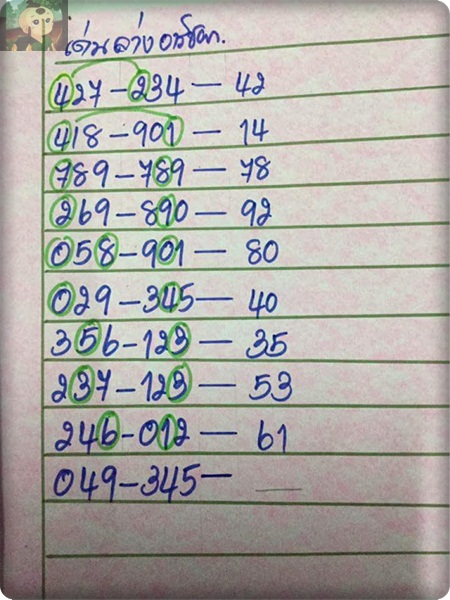 เด่นล่าง
427-234-42
418-901-14
789-789-78
269-890-92
058-901-80
029-345-40
356-123-35
237-123-53
246-012-61
049-345-